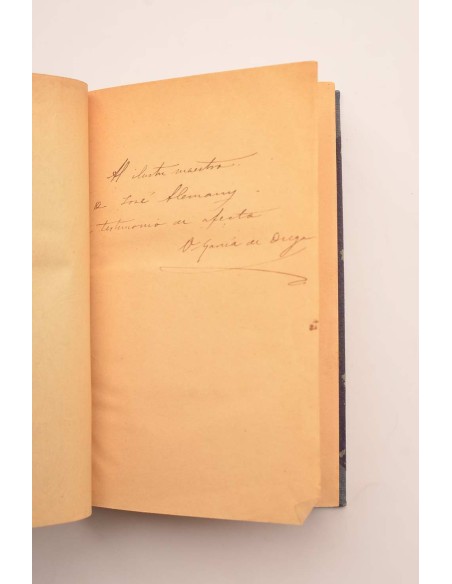 Al ilustre maestro
D. José Alemany.
testimonio de afecto
V García de Diego